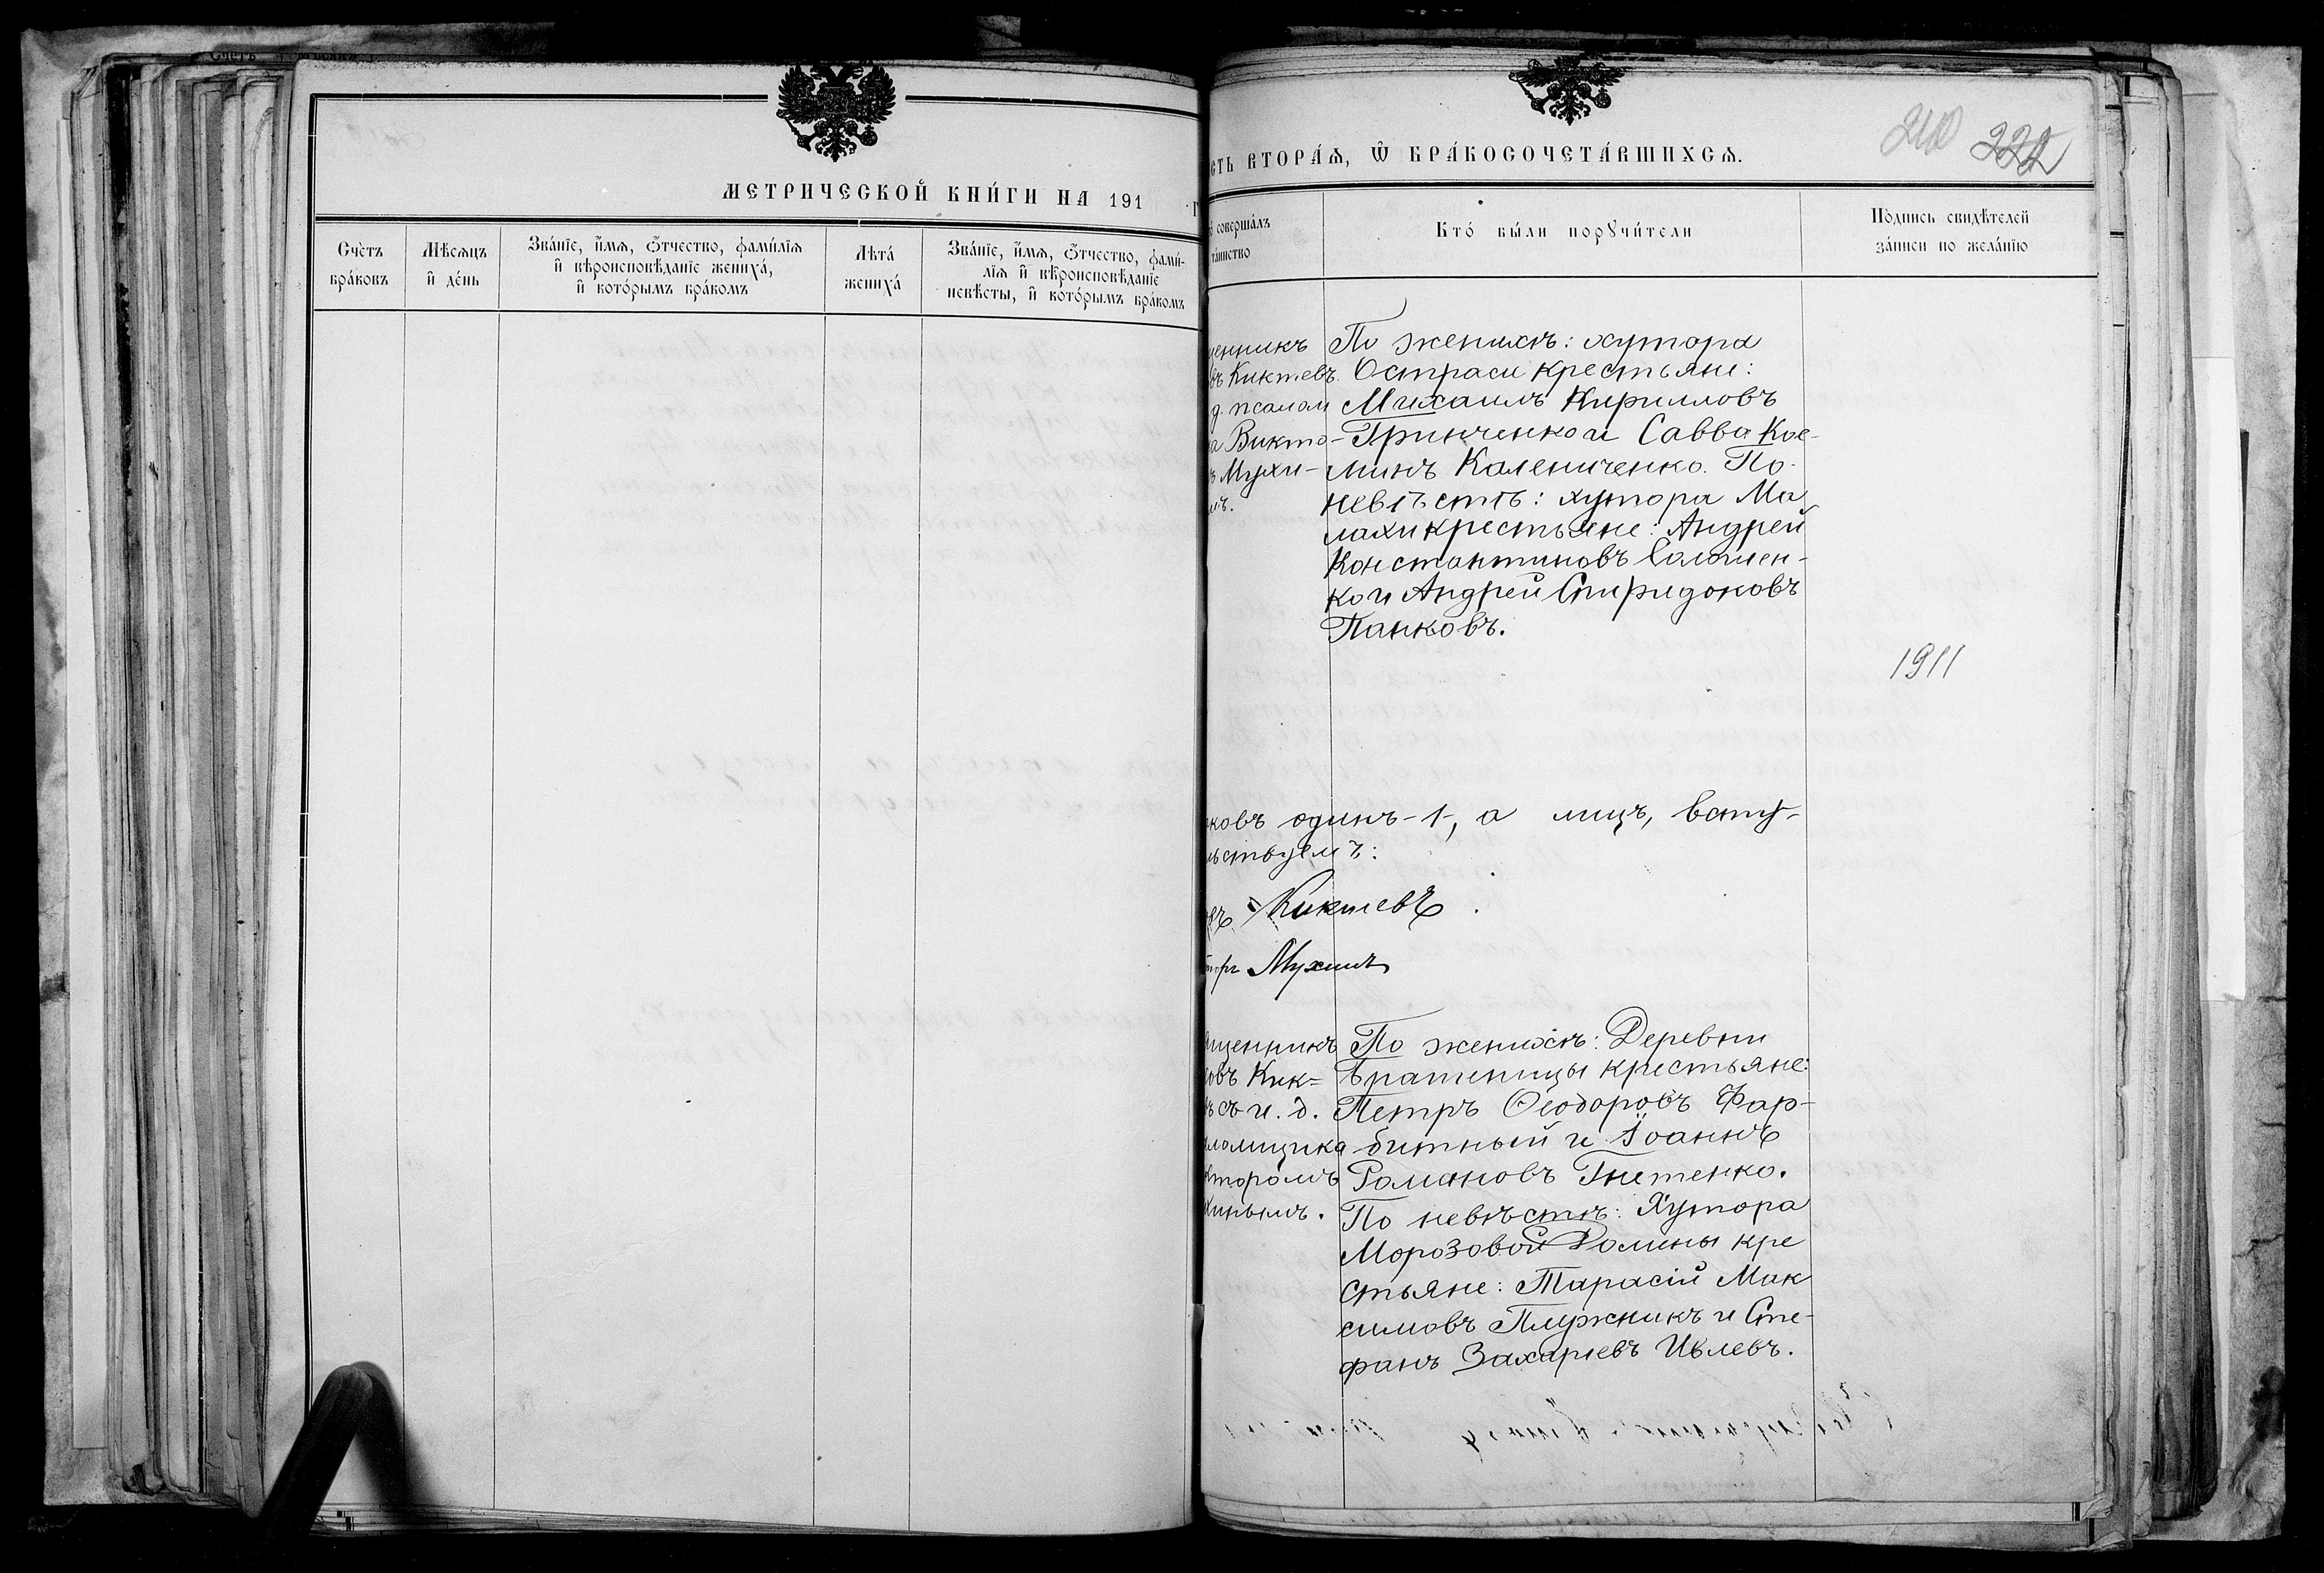 МЕТРИЧЕСКОЙ КНИ́ГИ НА 191 г
Сче́тъ бра́ковъ
Мѣ́сяцъ и де́нь
Зва́нїе, и́мѧ, ѻ҆́тчество, фами́лїѧ и вѣроисповѣ́данїе жениха́, и кото́рымъ бра́комъ
Лѣта́ жениха́
Зва́нїе, и́мѧ, ѻ҆́тчество, фами́-
лїѧ и вѣроисповѣ́данїе
невѣ́сты, и кото́рымъ бра́комъ
сть втора́ѧ, ѡ҆ бра́косочета́вшихсѧ.
210 222
совершáлъ
та́инство
Кто́ бы́ли порꙋчи́тели
По́дпись свидѣ́телей
за́писи по жела́нїю
щенникъ
въ Киктевъ
д. псалом
а Викто-
ъ Мухи-
мъ.
По женихѣ: хутора
Остраси крестьяне:
Михаилъ Кирилловъ
Гринченко и Савва Кос-
минъ Калениченко. По
невѣстѣ: хутора Ма
лахи крестьяне: Андрей
Константиновъ Саломен-
ко и Андрей Спиридоновъ
Панковъ.
1911
ковъ одинъ -1-, а лицъ, всту-
льствуемъ:
въ Киктевъ.
торъ Мухинъ
щенникъ
овъ Кик=
ъ съ и. д.
ломщика
кторомъ
хинымъ.
По женихѣ: Деревни
Братеницы крестьяне:
Петръ Ѳеодоровъ Фар-
битный и Іоаннъ
Романовъ Гнетенко.
По невѣстѣ: Хутора
Морозовой Долины кре
стьяне: Тарасій Мак
симовъ Плужникъ и Сте-
фанъ Захаріевъ Ивлевъ.